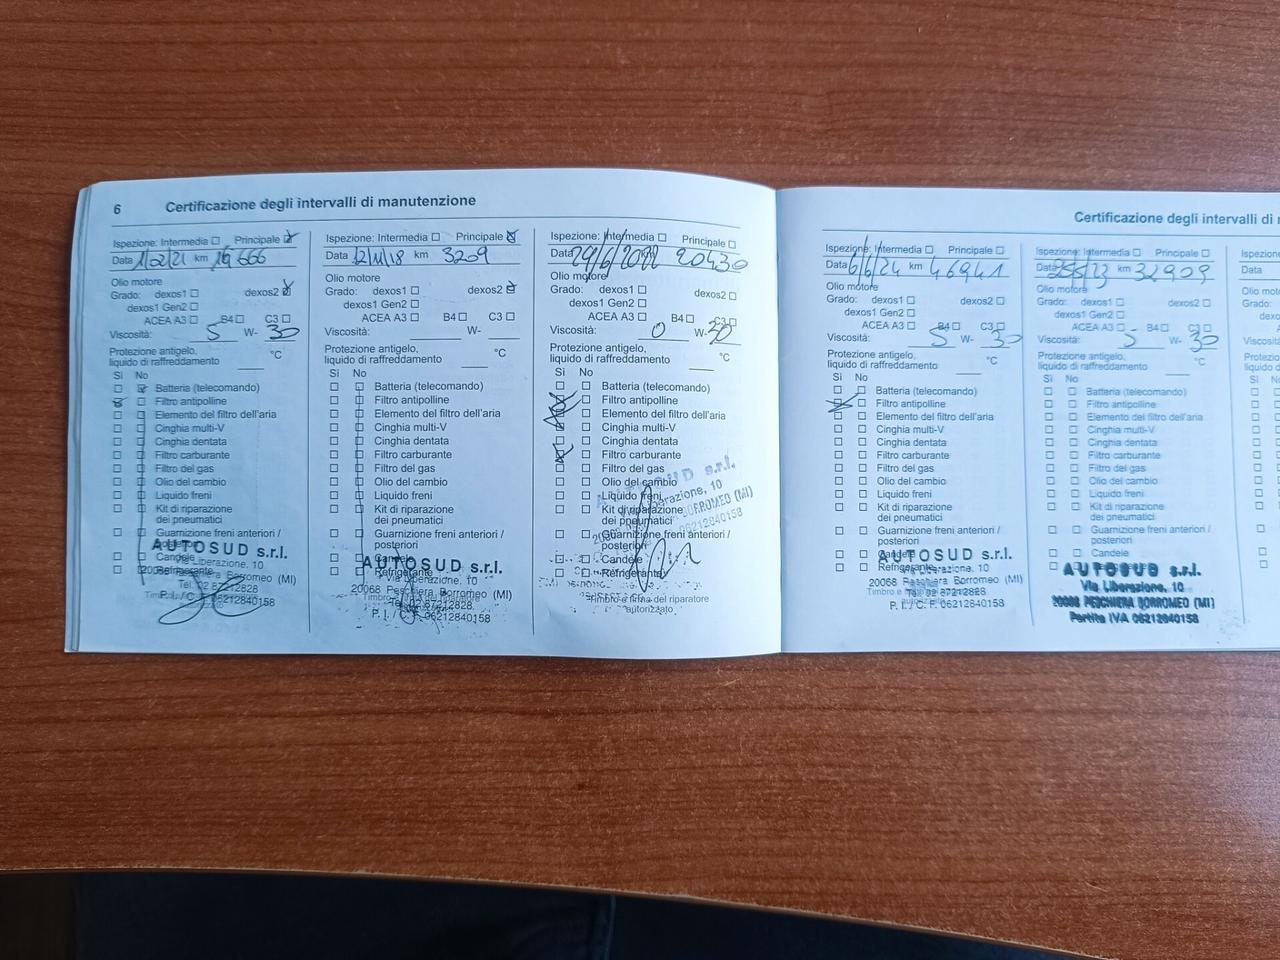 6 Certificazione degli intervalli di manutenzione
Ispezione: Intermedia Principale
Data 1/02/21 km 16666
Olio motore
Grado: dexos1 dexos2
dexos1 Gen2
ACEA A3 B4 C3
Viscosità: 5 W- 30
Protezione antigelo,
liquido di raffreddamento °C
Sì No
Batteria (telecomando)
Filtro antipolline
Elemento del filtro dell'aria
Cinghia multi-V
Cinghia dentata
Filtro carburante
Filtro del gas
Olio del cambio
Liquido freni
Kit di riparazione
dei pneumatici
Guarnizione freni anteriori /
Candele
Refrigerante
AUTOSUD s.r.l.
Via Liberazione, 10
Peschiera Borromeo (MI)
Tel. 02 87212828
P. I. / C. F. 06212840158
Ispezione: Intermedia Principale
Data 12/11/18 km 3209
Olio motore
Grado: dexos1 dexos2
dexos1 Gen2
ACEA A3 B4 C3
Viscosità: W-
Protezione antigelo,
liquido di raffreddamento °C
Sì No
Batteria (telecomando)
Filtro antipolline
Elemento del filtro dell'aria
Cinghia multi-V
Cinghia dentata
Filtro carburante
Filtro del gas
Olio del cambio
Liquido freni
Kit di riparazione
dei pneumatici
Guarnizione freni anteriori /
posteriori
Candele
Refrigerante
AUTOSUD s.r.l.
Via Liberazione, 10
20068 Peschiera Borromeo (MI)
Tel. 02 87212828
P. I. / C. F. 06212840158
Ispezione: Intermedia Principale
Data 29/6/2022 20430
Olio motore
Grado: dexos1 dexos2
dexos1 Gen2
ACEA A3 B4 C3
Viscosità: 0 W- 20
Protezione antigelo,
liquido di raffreddamento °C
Sì No
Batteria (telecomando)
Filtro antipolline
Elemento del filtro dell'aria
Cinghia multi-V
Cinghia dentata
Filtro carburante
Filtro del gas
Olio del cambio
Liquido freni
Kit di riparazione
dei pneumatici
Guarnizione freni anteriori /
posteriori
Candele
Refrigerante
AUTOSUD s.r.l.
Liberazione, 10
BORROMEO (MI)
06212840158
Timbro e firma del riparatore
autorizzato
Certificazione degli intervalli di
Ispezione: Intermedia Principale
Data 6/6/24 km 46941
Olio motore
Grado: dexos1 dexos2
dexos1 Gen2
ACEA A3 B4 C3
Viscosità: 5 W- 30
Protezione antigelo,
liquido di raffreddamento °C
Sì No
Batteria (telecomando)
Filtro antipolline
Elemento del filtro dell'aria
Cinghia multi-V
Cinghia dentata
Filtro carburante
Filtro del gas
Olio del cambio
Liquido freni
Kit di riparazione
dei pneumatici
Guarnizione freni anteriori /
posteriori
Candele
Refrigerante
AUTOSUD s.r.l.
Via Liberazione, 10
20068 Peschiera Borromeo (MI)
Tel. 02 87212828
P. I. / C. F. 06212840158
Ispezione: Intermedia Principale
Data km 32909
Olio motore
Grado: dexos1 dexos2
dexos1 Gen2
ACEA A3 B4 C3
Viscosità: 5 W- 30
Protezione antigelo,
liquido di raffreddamento °C
Sì No
Batteria (telecomando)
Filtro antipolline
Elemento del filtro dell'aria
Cinghia multi-V
Cinghia dentata
Filtro carburante
Filtro del gas
Olio del cambio
Liquido freni
Kit di riparazione
dei pneumatici
Guarnizione freni anteriori /
posteriori
Candele
AUTOSUD s.r.l.
Via Liberazione, 10
20068 PESCHIERA BORROMEO (MI)
Partita IVA 06212840158
Data